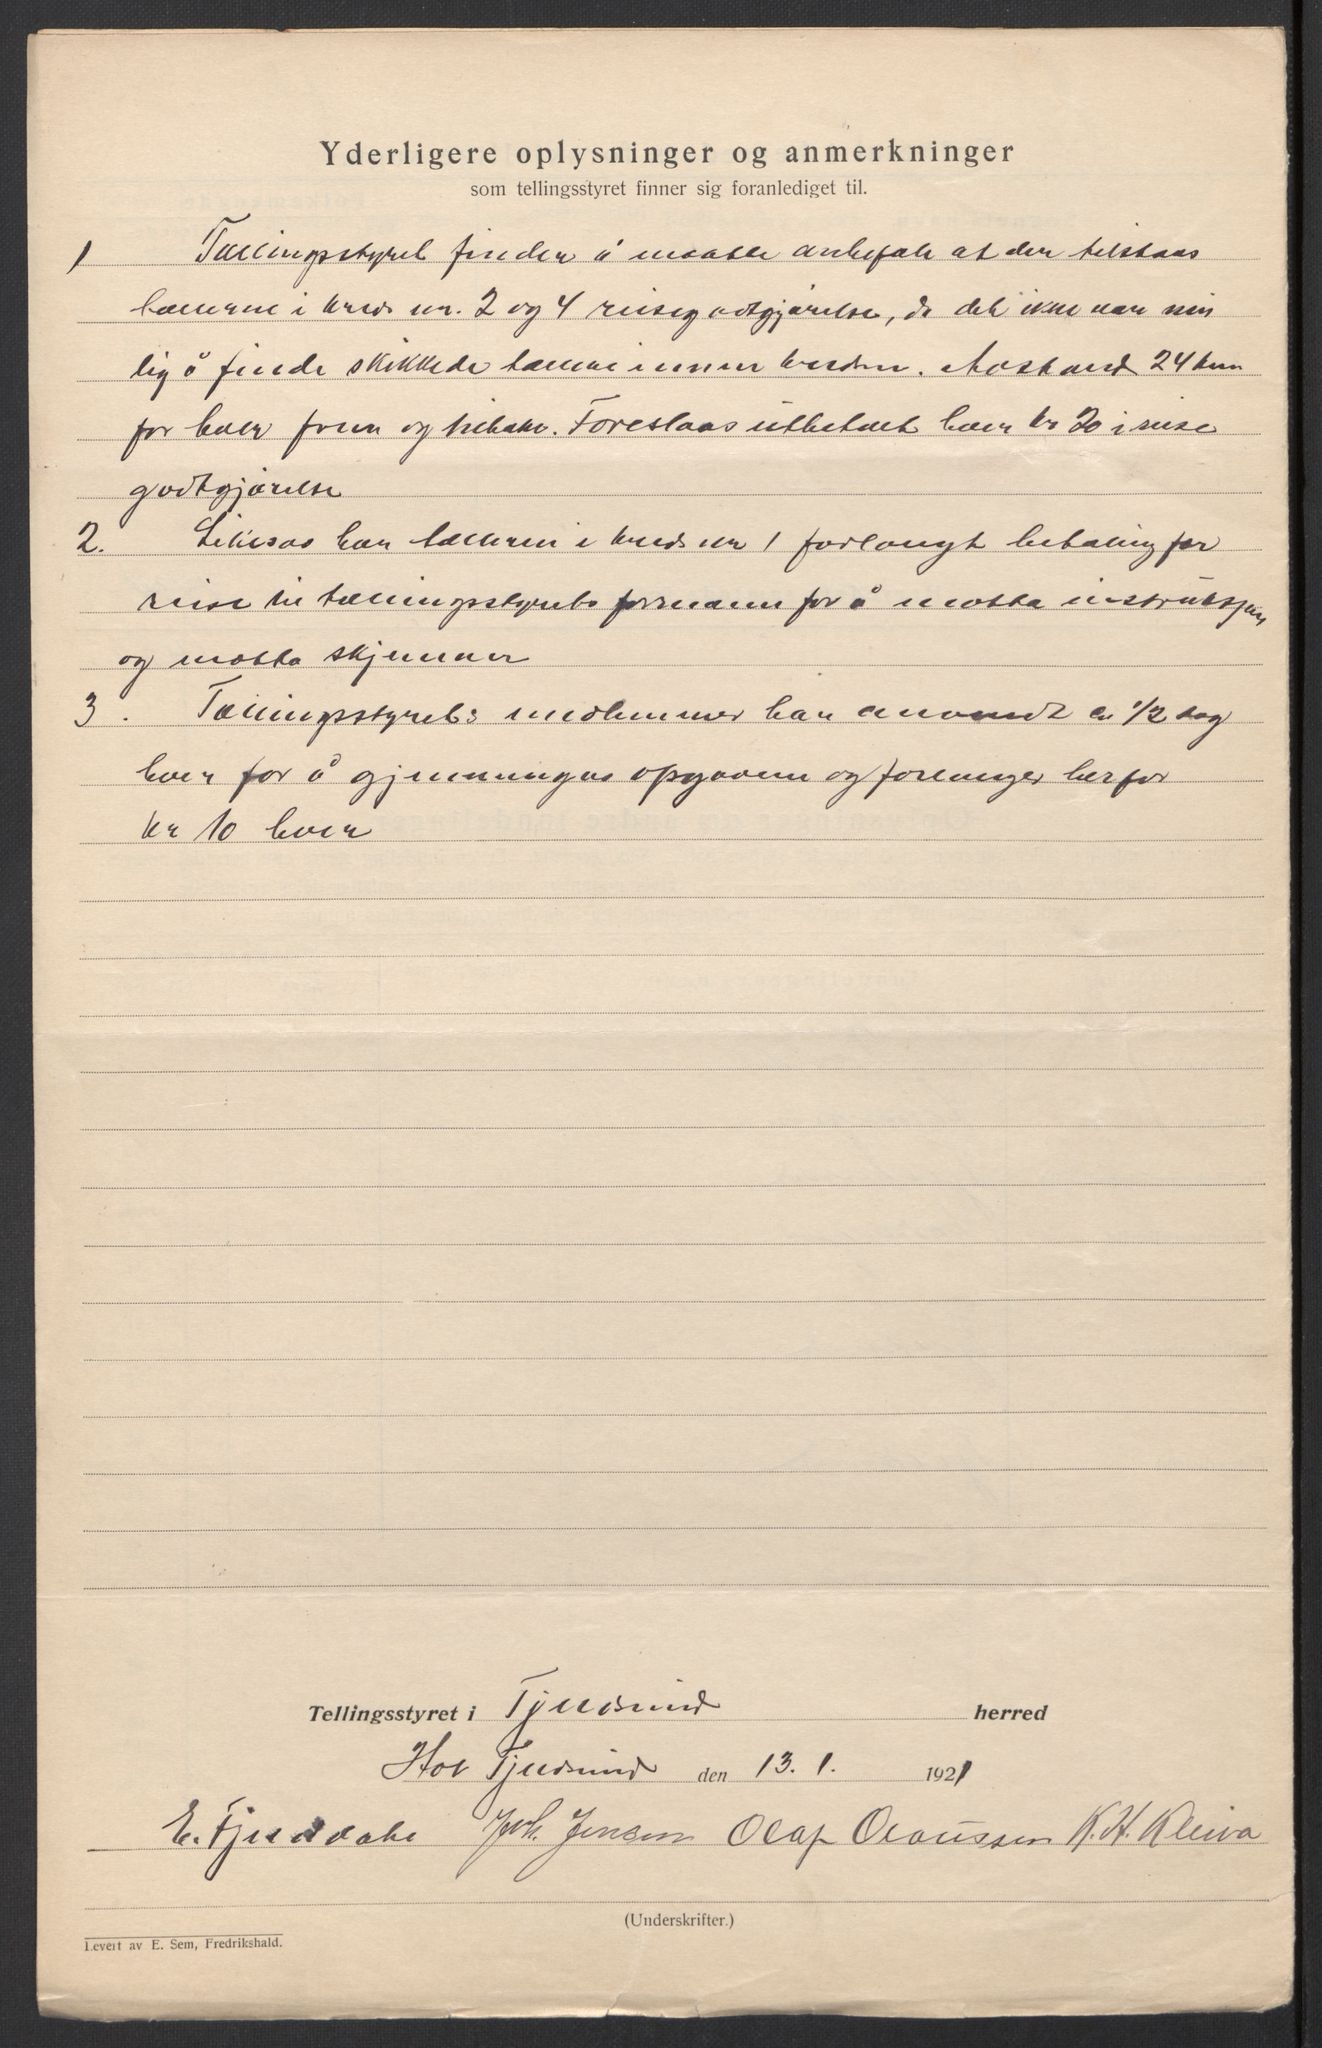 Yderligere oplysninger og anmerkninger
som tellingsstyret finner sig foranlediget til.
1 Tællingsstyret finder å maatte anbefale at der tilstaas
tællerne i kreds nr. 2 og 4 reisegodtgjørelse, da det ikke var mu
lig å finde skikkede tællere innen kredsen. Avstand 24 km
for hver frem og tilbake. Foreslaas utbetalt hver kr 20 i reise
godtgjørelse
2. Likesaa har tælleren i kreds nr 1 forlangt betaling for
reise til tællingsstyrets formann for å motta instruksjon
og motta skjemaer
3. Tællingsstyrets medlemmer har anvendt en 1/2 dag
hver for å gjennemgaa opgaven og forlanger herfor
kr 10 hver
Tellingsstyret i Tjeldsund herred
Hol Tjeldsund den 13. 1. 1921
E. Fjelldahl Joh. Jensen Olaf Olaussen K. H. Kleiva
(Underskrifter.)
Levert av E. Sem, Fredrikshald.